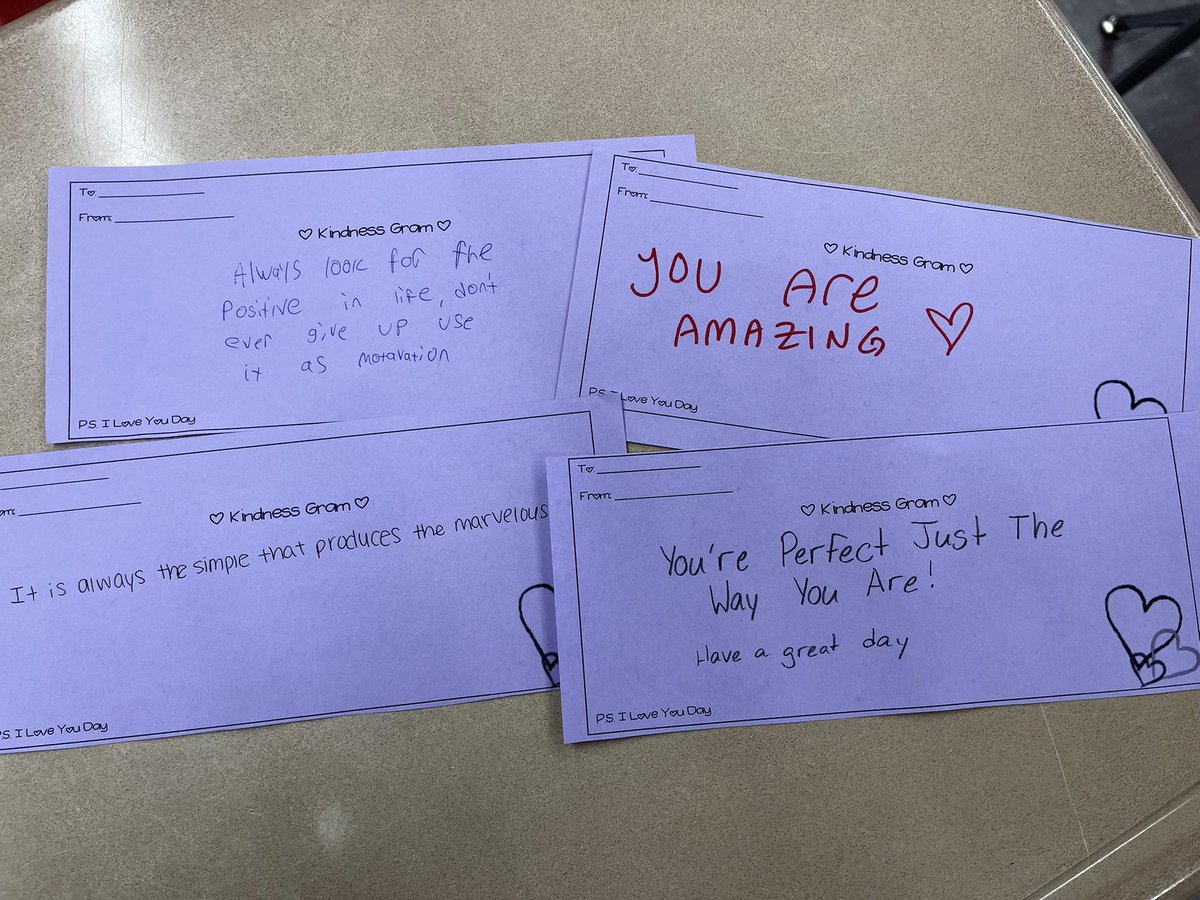 To:
From:
♡ Kindness Gram ♡
Always look for the
Positive in life, don't
ever give up use
it as motavation
P.S. I Love You Day
To:
From:
♡ Kindness Gram ♡
You Are
AMAZING ♡
P.S. I Love You Day
♡ Kindness Gram ♡
It is always the simple that produces the marvelous
P.S. I Love You Day
To:
From:
♡ Kindness Gram ♡
You're Perfect Just The
Way You Are!
Have a great day
P.S. I Love You Day